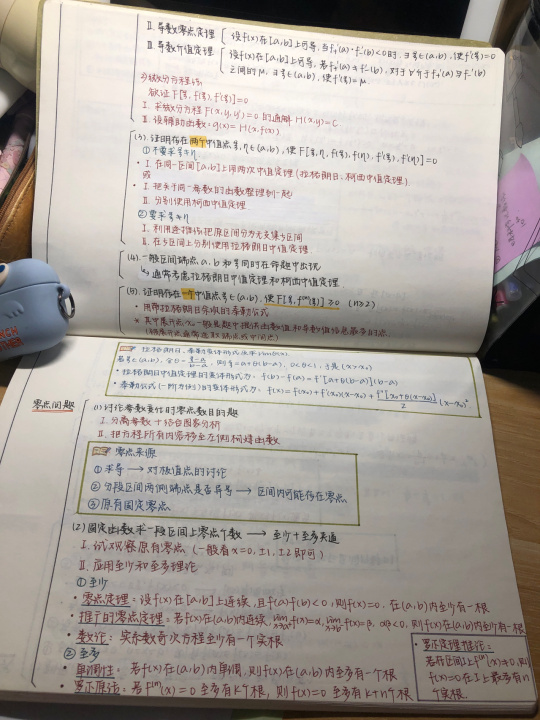 II. 导数零点定理 [设f(x)在[a,b]上可导,当f₊'(a)·f₋'(b)<0时,∃ξ∈(a,b),使f'(ξ)=0
III. 导数介值定理 [设f(x)在[a,b]上可导,若f₊'(a)≠f₋'(b),对于∀介于f₊'(a)与f₋'(b)
之间的μ,∃ξ∈(a,b),使f'(ξ)=μ.
欲证F[ξ,f(ξ),f'(ξ)]=0
I. 求微分方程F(x,y,y')=0的通解H(x,y)=C
II. 设辅助函数:g(x)=H(x,f(x))
(3).证明存在两个中值点ξ,η∈(a,b),使F[ξ,η,f(ξ),f(η),f'(ξ),f'(η)]=0
①不要求ξ≠η
I. 在同一区间[a,b]上用两次中值定理(拉格朗日、柯西中值定理)
或
I. 把关于同一参数的函数整理到一起
II. 分别使用柯西中值定理
②要求ξ≠η
II. 在各区间上分别使用拉格朗日中值定理
(4).一般区间端点a,b和ξ同时在命题中出现
↳通常考虑拉格朗日中值定理和柯西中值定理
(5).证明存在一个中值点ξ∈(a,b),使F[ξ,f⁽ⁿ⁾(ξ)]≥0 (n≥2)
• 用带拉格朗日余项的泰勒公式
* 其中展开点x₀一般是题中提供函数值和导数值信息最多的点
拉格朗日、泰勒变体形式
若ξ∈(a,b),令θ=(ξ-a)/(b-a),则ξ=a+θ(b-a),0<θ<1,
• 拉格朗日中值定理的变体形式为:f(b)-f(a)=f'[a+θ(b-a)](b-a)
• 泰勒公式(一阶为例)的变体形式为:f(x)=f(x₀)+f'(x₀)(x-x₀)+f''[x₀+θ(x-x₀)]/2 (x-x₀)²
零点问题
(1)讨论参数变化时的零点数目问题
I. 分离参数+结合图象分析
II. 把方程所有内容移至左侧构造函数
零点来源
①求导→对极值点的讨论
②分段区间两侧端点是否异号→区间内可能存在零点
③原有固定零点
(2)固定函数求一段区间上零点个数→至少+至多表述
I. 试观察原有零点(一般看x=0,±1,±2即可)
II. 应用至少和至多理论
①至少
• 零点定理:设f(x)在[a,b]上连续,且f(a)f(b)<0,则f(x)=0,在(a,b)内至少有一根
• 推广的零点定理:若f(x)在(a,b)内连续,lim x→a⁺ f(x)=α,lim x→b⁻ f(x)=β,αβ<0,则f(x)在(a,b)内至少有一根
• 数论:实系数奇次方程至少有一个实根
②至多
• 单调性:若f(x)在(a,b)内单调,则f(x)在(a,b)内至多有一个根
• 罗尔原话:若f⁽ⁿ⁾(x)=0至多有k个根,则f(x)=0至多有k+n个根
• 罗尔定理推论:
若在区间I上f⁽ⁿ⁾(x)≠0,则
f(x)=0在I上最多有n
个实根.